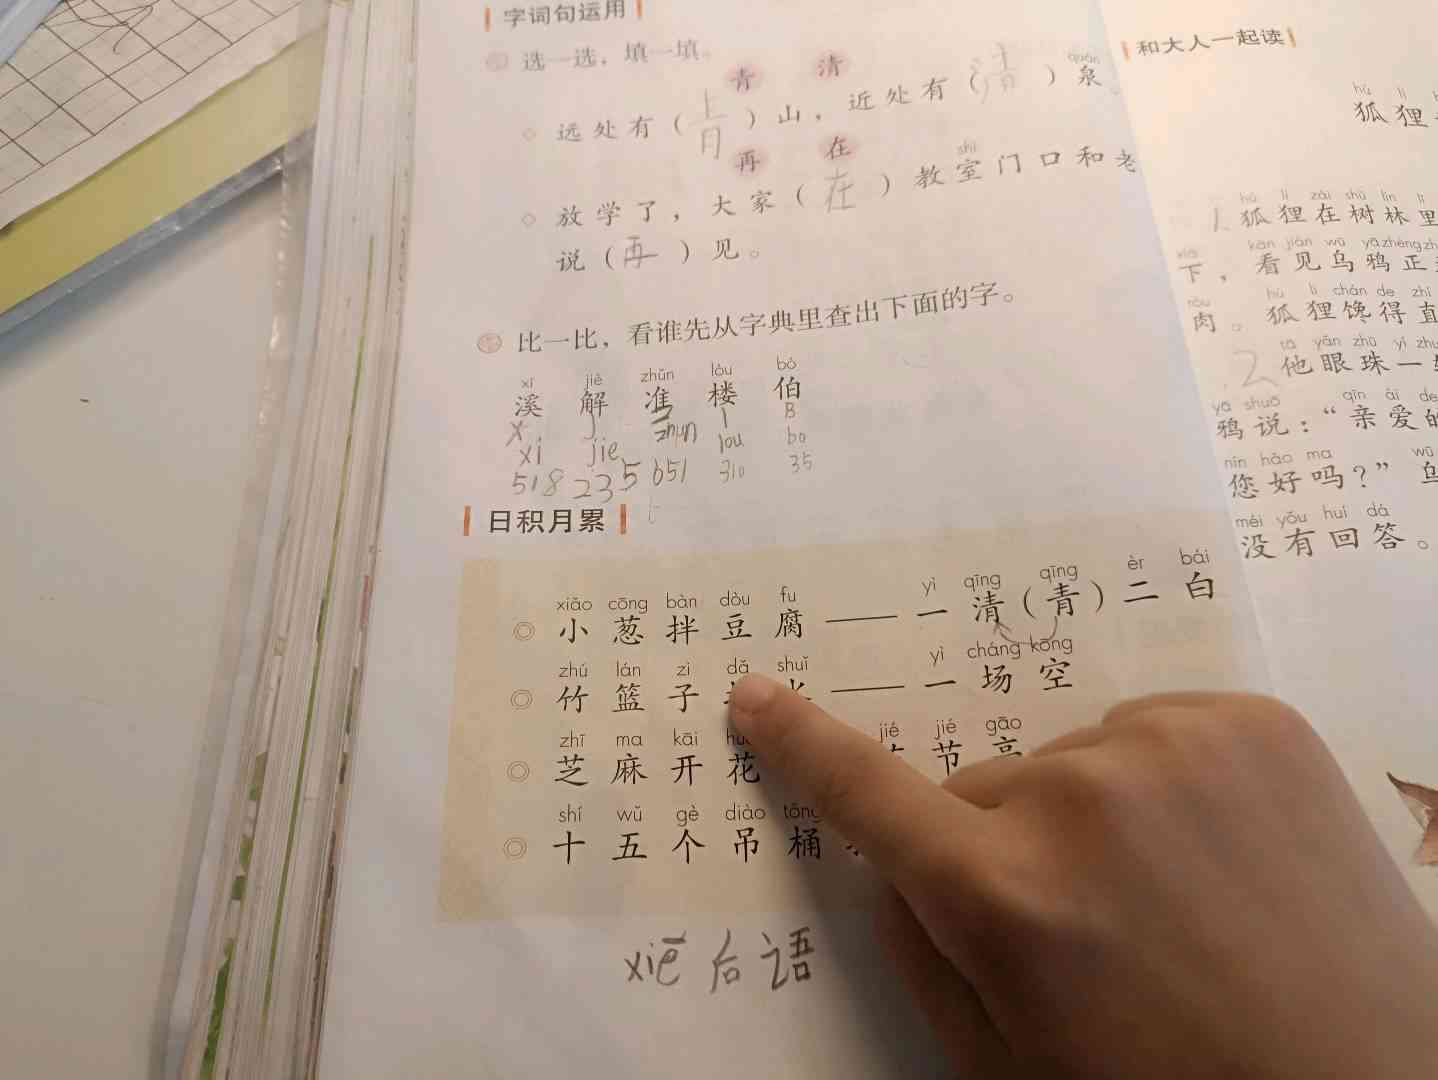 字词句运用
选一选，填一填。
青 清
远处有（青）山，近处有（清）泉
quán
再 在
shì
放学了，大家（在）教室门口和老
说（再）见。
比一比，看谁先从字典里查出下面的字。
xī jiě zhǔn lóu bó
溪 解 准 楼 伯
X J Z l B
xi jie zhun lou bo
518 235 651 310 35
日积月累
xiǎo cōng bàn dòu fu yì qīng qīng èr bái
小葱拌豆腐——一清（青）二白
zhú lán zi dǎ shuǐ yì cháng kōng
竹篮子打水——一场空
zhī ma kāi huā jié jié gāo
芝麻开花 节节高
shí wǔ gè diào tǒng
十五个吊桶
xiē后语
和大人一起读
hú li
狐狸
hú li zài shù lín lǐ
1. 狐狸在树林里
xià kàn jiàn wū yā zhèng
下，看见乌鸦正
ròu hú li chán de zhí
肉。狐狸馋得直
tā yǎn zhū yí zhuàn
2 他眼珠一
yā shuō qīn ài de
鸦说：“亲爱的
nín hǎo ma wū
您好吗？” 乌
méi yǒu huí dá
没有回答。